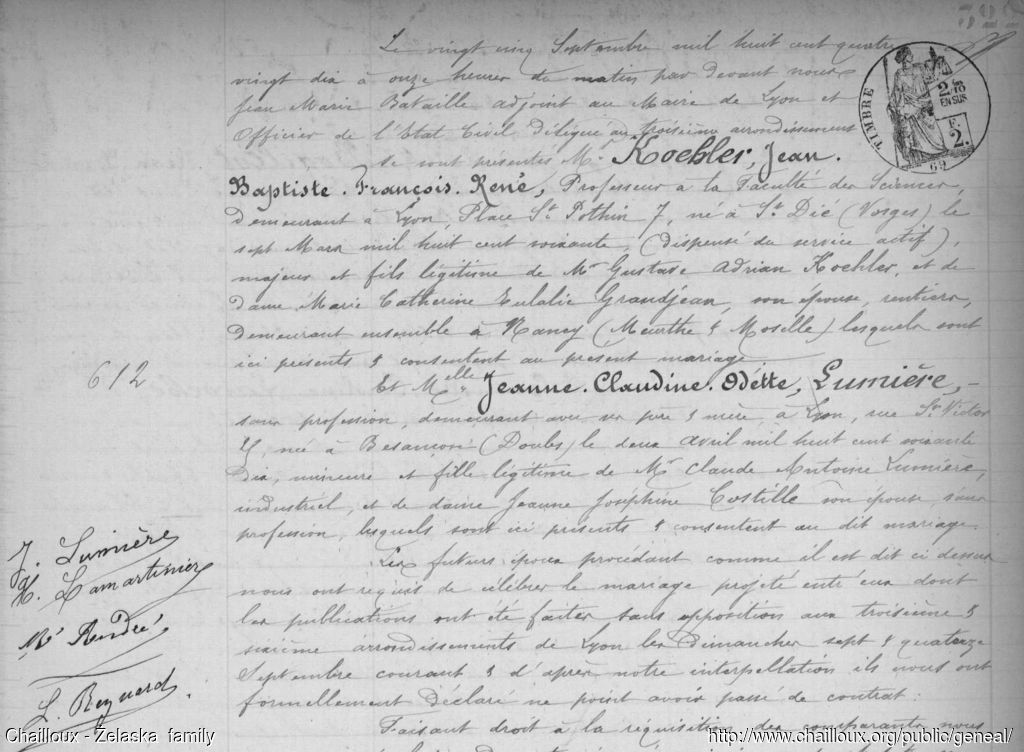 322
Le vingt cinq Septembre mil huit cent quatre
vingt dix à onze heures du matin par devant nous
Jean Marie Bataille adjoint au Maire de Lyon et
Officier de l'Etat Civil délégué au troisième arrondissement
se sont présentés Mr Koehler, Jean.
Baptiste. François. René, Professeur à la Faculté des Sciences,
demeurant à Lyon, Place St Pothin 7, né à St Dié (Vosges) le
sept Mars mil huit cent soixante, (dispensé du service actif),
majeur et fils légitime de Mr Gustave Adrian Koehler, et de
dame Marie Catherine Eulalie Grandjean, son épouse, rentiers,
demeurant ensemble à Nancy (Meurthe & Moselle) lesquels sont
ici présents & consentent au présent mariage.
Et Melle Jeanne. Claudine. Odette, Lumière,
sans profession, demeurant avec ses père & mère, à Lyon, rue St Victor
né à Besançon (Doubs) le deux Avril mil huit cent soixante
dix, mineure et fille légitime de Mr Claude Antoine Lumière,
industriel, et de dame Jeanne Joséphine Costille son épouse, sans
profession, lesquels sont ici présents & consentent au dit mariage.
Les futurs époux procédant comme il est dit ci dessus
nous ont requis de célébrer le mariage projeté entre eux dont
les publications ont été faites sans opposition aux troisième &
sixième arrondissements de Lyon les dimanches sept & quatorze
Septembre courant & d'après notre interpellation ils nous ont
formellement déclaré ne point avoir passé de contrat.
Faisant droit à la réquisition des comparants nous
TIMBRE
2/10
EN SUS
F.
2.
69
612
J. Lumière
Lamartinière
André
L. Reynard
Chailloux - Żelaska family
http://www.chailloux.org/public/geneal/